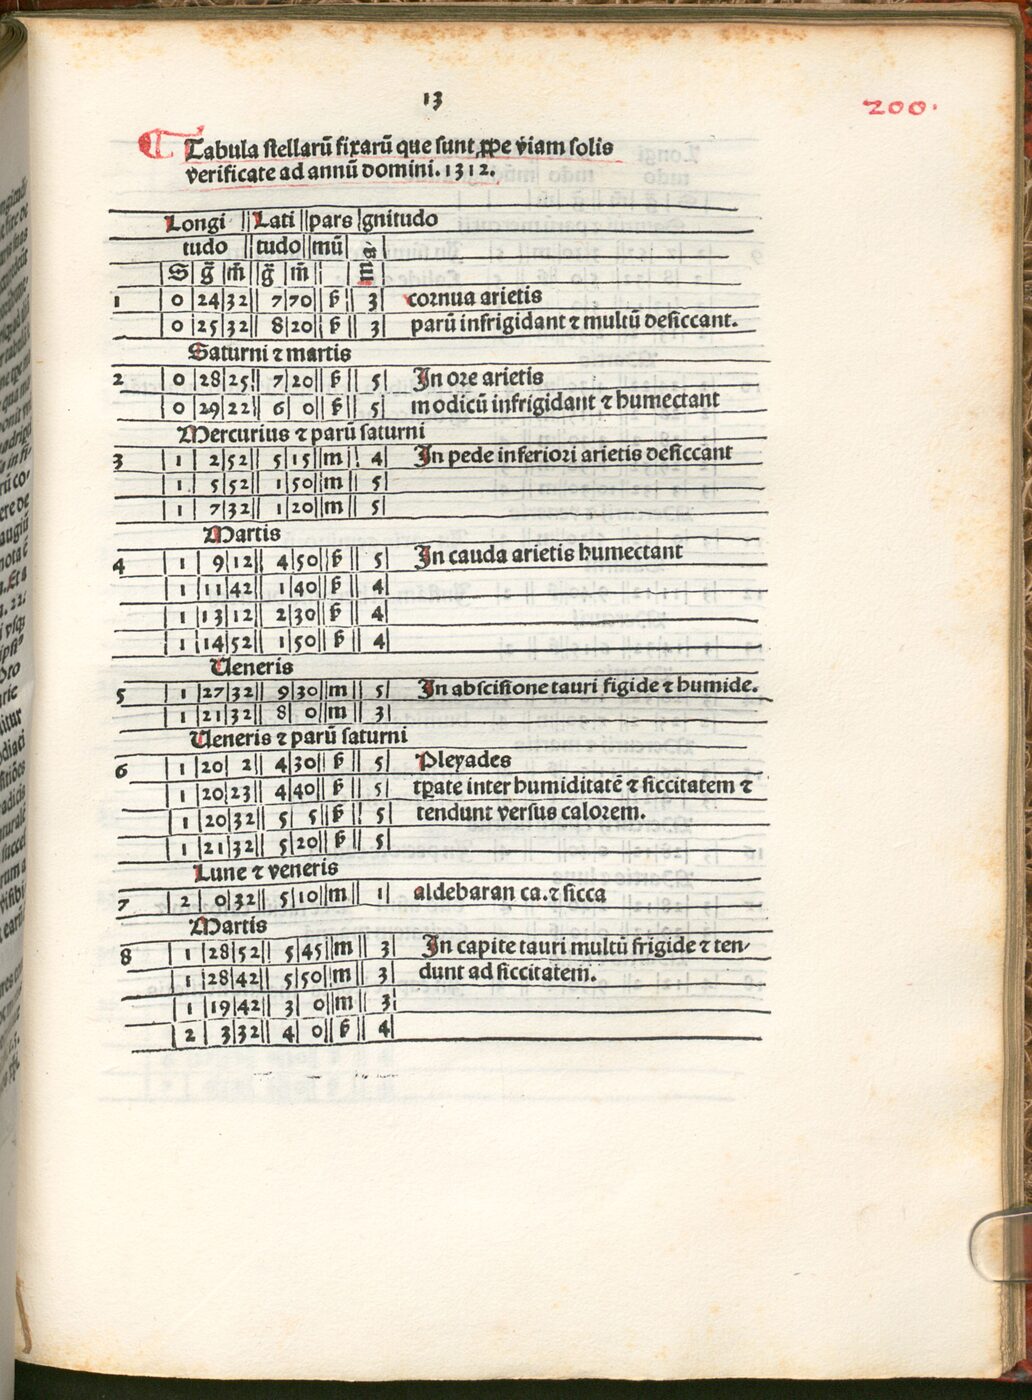 13
200.
Tabula stellarū fixarū que sunt ꝓpe viam solis
verificate ad annū domini. 1312.
Longi || Lati || pars |gnitudo
tudo || tudo || mū | à
S | g̃ | m̃ || g̃ | m̃ || || m
1 | 0 | 24 | 32 || 7 | 70 || p̄ || 3 | cornua arietis
| 0 | 25 | 32 || 8 | 20 || p̄ || 3 | parū infrigidant ⁊ multū desiccant.
Saturni ⁊ martis
2 | 0 | 28 | 25 || 7 | 20 || p̄ || 5 | In ore arietis
| 0 | 29 | 22 || 6 | 0 || p̄ || 5 | modicū infrigidant ⁊ humectant
Mercurius ⁊ parū saturni
3 | 1 | 2 | 52 || 5 | 15 || m || 4 | In pede inferiori arietis desiccant
| 1 | 5 | 52 || 1 | 50 || m || 5 |
| 1 | 7 | 32 || 1 | 20 || m || 5 |
Martis
4 | 1 | 9 | 12 || 4 | 50 || p̄ || 5 | In cauda arietis humectant
| 1 | 11 | 42 || 1 | 40 || p̄ || 4 |
| 1 | 13 | 12 || 2 | 30 || p̄ || 4 |
| 1 | 14 | 52 || 1 | 50 || p̄ || 4 |
Veneris
5 | 1 | 27 | 32 || 9 | 30 || m || 5 | In abscisione tauri figide ⁊ humide.
| 1 | 21 | 32 || 8 | 0 || m || 3 |
Veneris ⁊ parū saturni
6 | 1 | 20 | 2 || 4 | 30 || p̄ || 5 | Pleyades
| 1 | 20 | 23 || 4 | 40 || p̄ || 5 | tꝑate inter humiditatē ⁊ siccitatem ⁊
| 1 | 20 | 32 || 5 | 5 || p̄ || 5 | tendunt versus calorem.
| 1 | 21 | 32 || 5 | 20 || p̄ || 5 |
Lune ⁊ veneris
7 | 2 | 0 | 32 || 5 | 10 || m || 1 | aldebaran ca. ⁊ sicca
Martis
8 | 1 | 28 | 52 || 5 | 45 || m || 3 | In capite tauri multū frigide ⁊ ten-
| 1 | 28 | 42 || 5 | 50 || m || 3 | dunt ad siccitatem.
| 1 | 19 | 42 || 3 | 0 || m || 3 |
| 2 | 3 | 32 || 4 | 0 || p̄ || 4 |